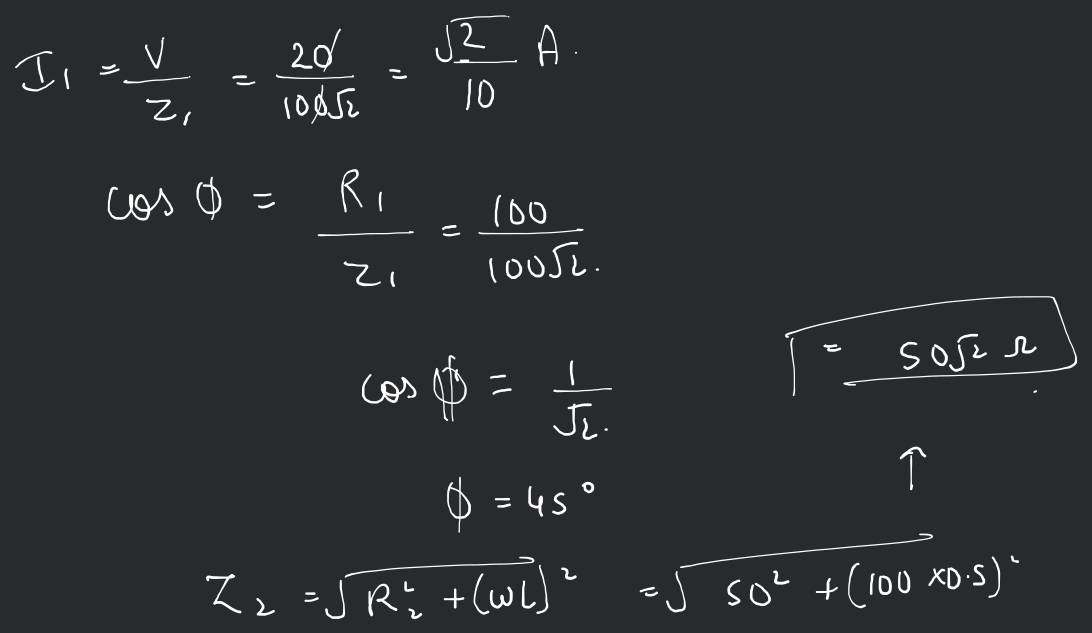 I₁ = V/Z₁ = 20/100√2 = √2/10 A.
cos ϕ = R₁/Z₁ = 100/100√2.
cos ϕ = 1/√2.
= 50√2 Ω
↑
ϕ = 45°
Z₂ = √R₂² + (ωL)² = √50² + (100 × 0.5)²